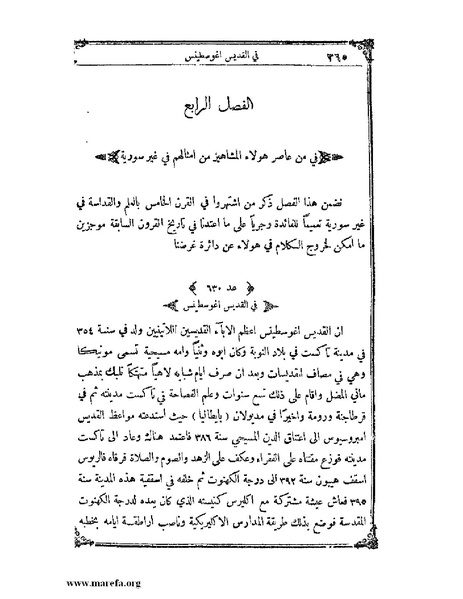 ٣٦٥ في القديس اغوسطينس
الفصل الرابع
في من عاصر هولاء المشاهير من امثالهم في غير سورية
نضمن هذا الفصل ذكر من اشتهروا في القرن الخامس بالعلم والقداسة في
غير سورية تعميماً للفائدة وجرياً على ما اعتدنا في تاريخ القرون السابقة موجزين
ما امكن لخروج الكلام في هولاء عن دائرة غرضنا
عد ٦٣٠
في القديس اغوسطينس
ان القديس اغوسطينس اعظم الاباء القديسين اللاتينيين ولد في سنة ٣٥٤
في مدينة تاكست في بلاد النوبة وكان ابوه وثنياً وامه مسيحية تسمى مونيكا
وهي في مصاف القديسات وبعد ان صرف ايام شبابه لاهياً متهتكاً تلبك بمذهب
ماني المضل واقام على ذلك تسع سنوات وعلم الفصاحة في تاكست مدينته ثم في
قرطاجنة ورومة واخيراً في مديولان (بايطاليا) حيث استدعته مواعظ القديس
امبروسيوس الى اعتناق الدين المسيحي سنة ٣٨٦ فاعتمد هنالك وعاد الى تاكست
مدينته فوزع مقتناه على الفقراء وعكف على الزهد والصوم والصلاة فرقاه فاليريوس
اسقف هيبون سنة ٣٩٢ الى درجة الكهنوت ثم خلفه في اسقفية هذه المدينة سنة
٣٩٥ فعاش عيشة مشتركة مع اكليرس كنيسته الذي كان يعده لدرجة الكهنوت
المقدسة فوضع بذلك طريقة المدارس الاكليريكية وناصب اراطقة ايامه بخطبه
www.marefa.org